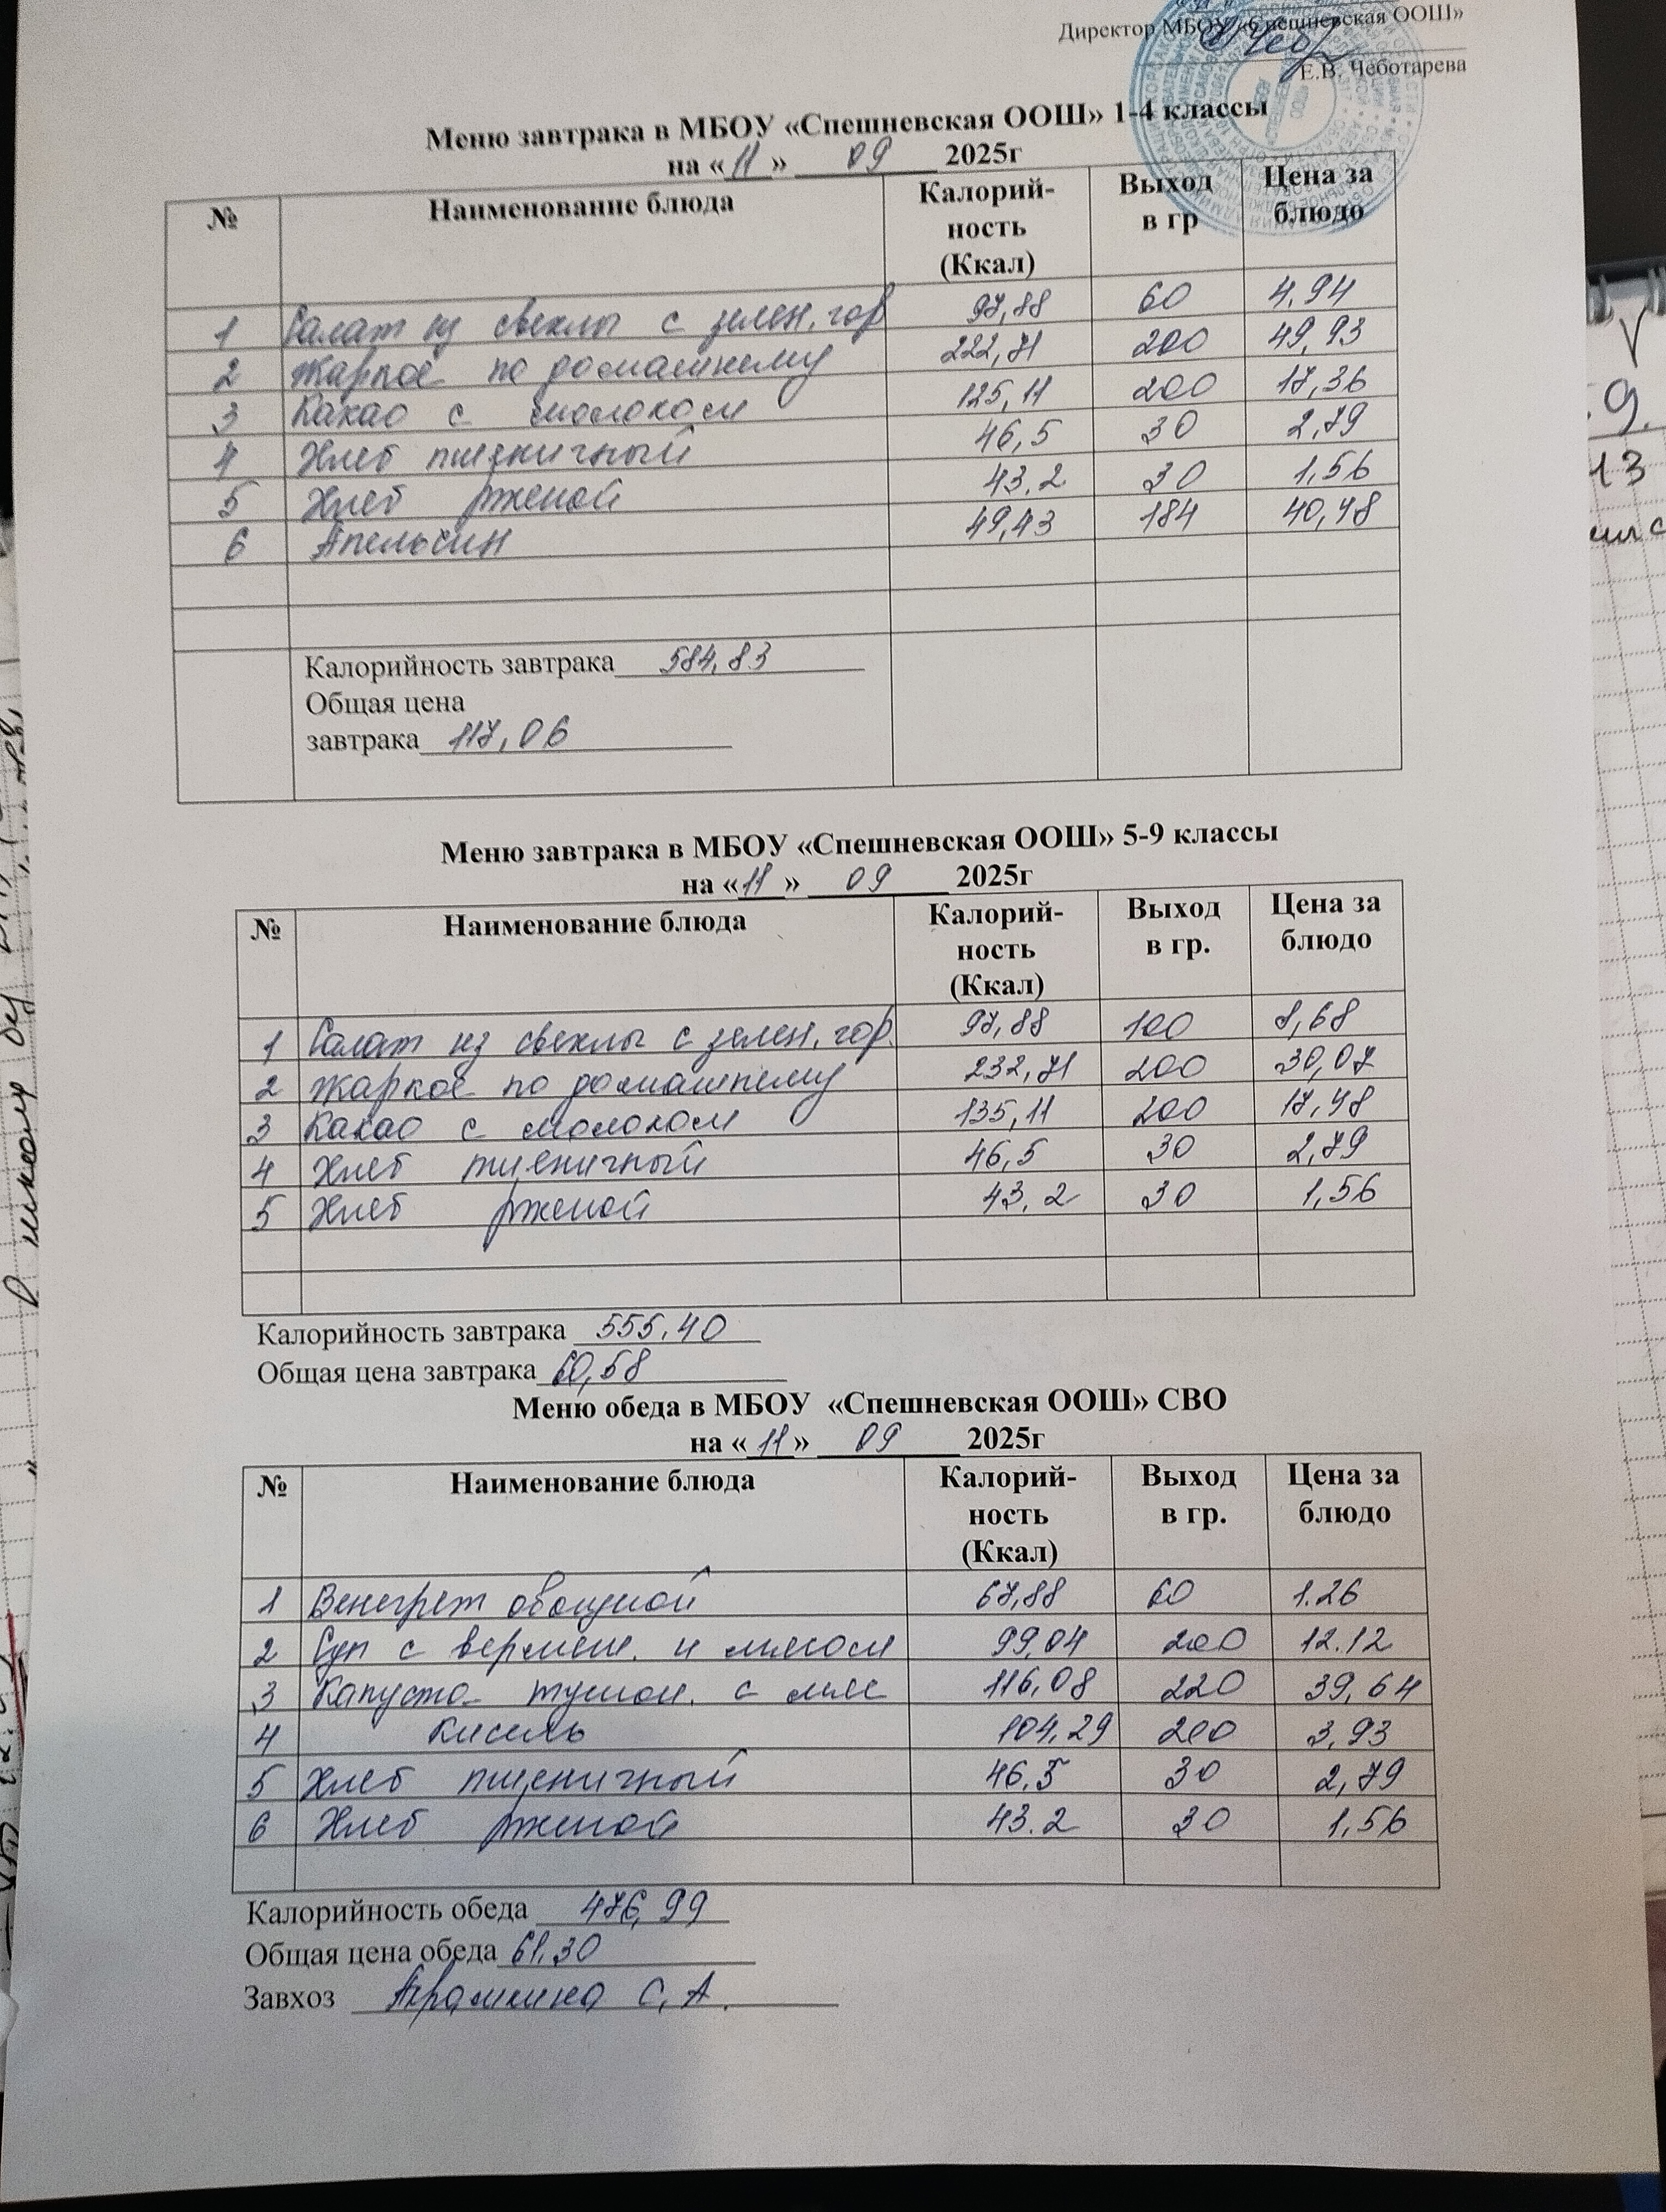 Директор МБОУ «Спешневская ООШ»
Е.В. Чеботарева
Меню завтрака в МБОУ «Спешневская ООШ» 1-4 классы
на «11» 09 2025г
№ Наименование блюда Калорий-ность (Ккал) Выход в гр Цена за блюдо
1 Салат из свеклы с зелен. гор 97,88 60 4.94
2 Жаркое по домашнему 222,71 200 49,93
3 Какао с молоком 125,11 200 17,36
4 Хлеб пшеничный 46,5 30 2,79
5 Хлеб рженой 43.2 30 1,56
6 Апельсин 49,43 184 40,48
Калорийность завтрака 584,83
Общая цена
завтрака 117,06
Меню завтрака в МБОУ «Спешневская ООШ» 5-9 классы
на «11» 09 2025г
№ Наименование блюда Калорий-ность (Ккал) Выход в гр. Цена за блюдо
1 Салат из свеклы с зелен. гор. 97,88 100 8,68
2 Жаркое по домашнему 232,71 200 30,07
3 Какао с молоком 135,11 200 17,48
4 Хлеб пшеничный 46,5 30 2,79
5 Хлеб рженой 43,2 30 1,56
Калорийность завтрака 555,40
Общая цена завтрака 60,58
Меню обеда в МБОУ «Спешневская ООШ» СВО
на «11» 09 2025г
№ Наименование блюда Калорий-ность (Ккал) Выход в гр. Цена за блюдо
1 Венегрет овощной 67,88 60 1.26
2 Суп с вермеш. и мясом 99,04 200 12.12
3 Капуста тушон. с мяс 116,08 220 39,64
4 Кисель 104,29 200 3,93
5 Хлеб пшеничный 46,5 30 2,79
6 Хлеб рженой 43.2 30 1,56
Калорийность обеда 476,99
Общая цена обеда 61,30
Завхоз С.А.